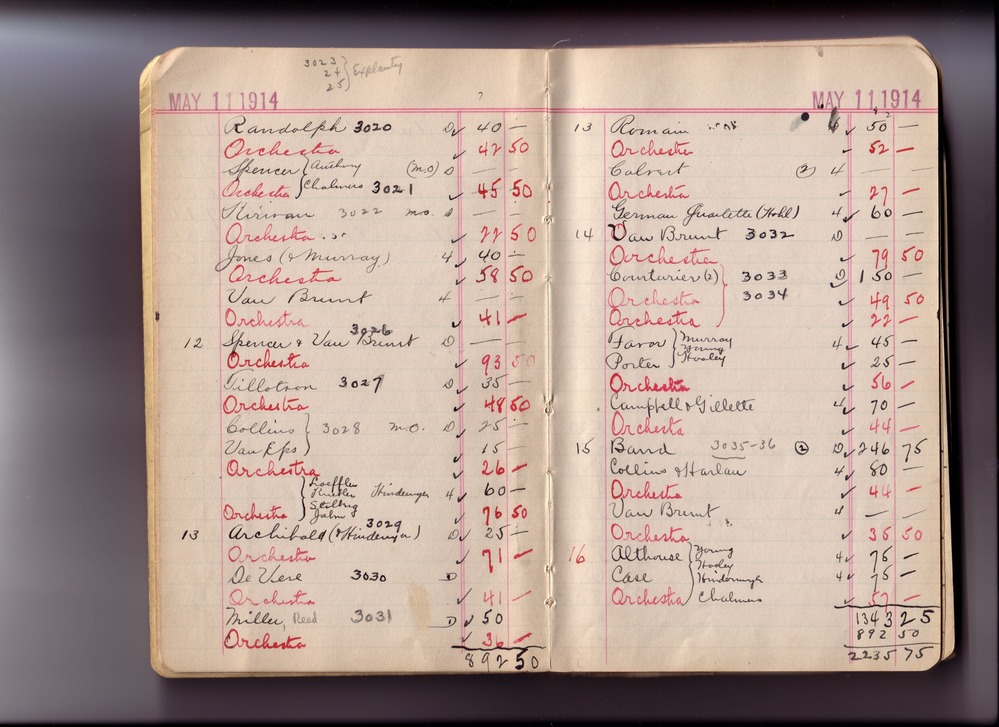 3023
24
25 } Explanatory
MAY 11 1914
Randolph 3020 D ✓ 40 —
Orchestra ✓ 42 50
Spencer { Anthony (M.O) D — —
Orchestra { Chalmers 3021 ✓ 45 50
Kirwan 3022 M.O. D — —
Orchestra ✓ 22 50
Jones (& Murray) 4 ✓ 40 —
Orchestra ✓ 58 50
Van Brunt 4 — —
Orchestra ✓ 41 —
3026
12 Spencer & Van Brunt D — —
Orchestra ✓ 93 50
Tillotson 3027 D ✓ 35 —
Orchestra ✓ 48 50
Collins } 3028 M.O. D ✓ 25 —
Van Eps } ✓ 15 —
Orchestra ✓ 26 —
Loeffler
Hindemyer 4 ✓ 60 —
Orchestra ✓ 76 50
3029
13 Archibald (& Hindemyer) D ✓ 25 —
Orchestra ✓ 71 —
De Vere 3030 D
Orchestra ✓ 41 —
Miller, Reed 3031 D ✓ 50
Orchestra ✓ 36 —
892 50
MAY 11 1914
13 Romain 4 ✓ 50 —
Orchestra ✓ 52 —
Calvert (2) 4 — —
Orchestra ✓ 27 —
German Quartette (Hohl) 4 ✓ 60 —
14 Van Brunt 3032 D — —
Orchestra ✓ 79 50
Couturier (2) } 3033 D ✓ 150 —
Orchestra } 3034 ✓ 49 50
Orchestra } ✓ 22 —
Favor { Murray 4 ✓ 45 —
Young
Porter { Hooley ✓ 25 —
Orchestra ✓ 56 —
Campbell & Gillette 4 ✓ 70 —
Orchestra ✓ 44 —
15 Band 3035-36 (2) D ✓ 246 75
Collins & Harlan 4 ✓ 80 —
Orchestra ✓ 44 —
Van Brunt 4 — —
Orchestra ✓ 35 50
16 Althouse { Young 4 ✓ 75 —
Hooley
Case { Hindermyer 4 ✓ 75 —
Orchestra { Chalmers ✓ 57 —
1343 25
892 50
2235 75